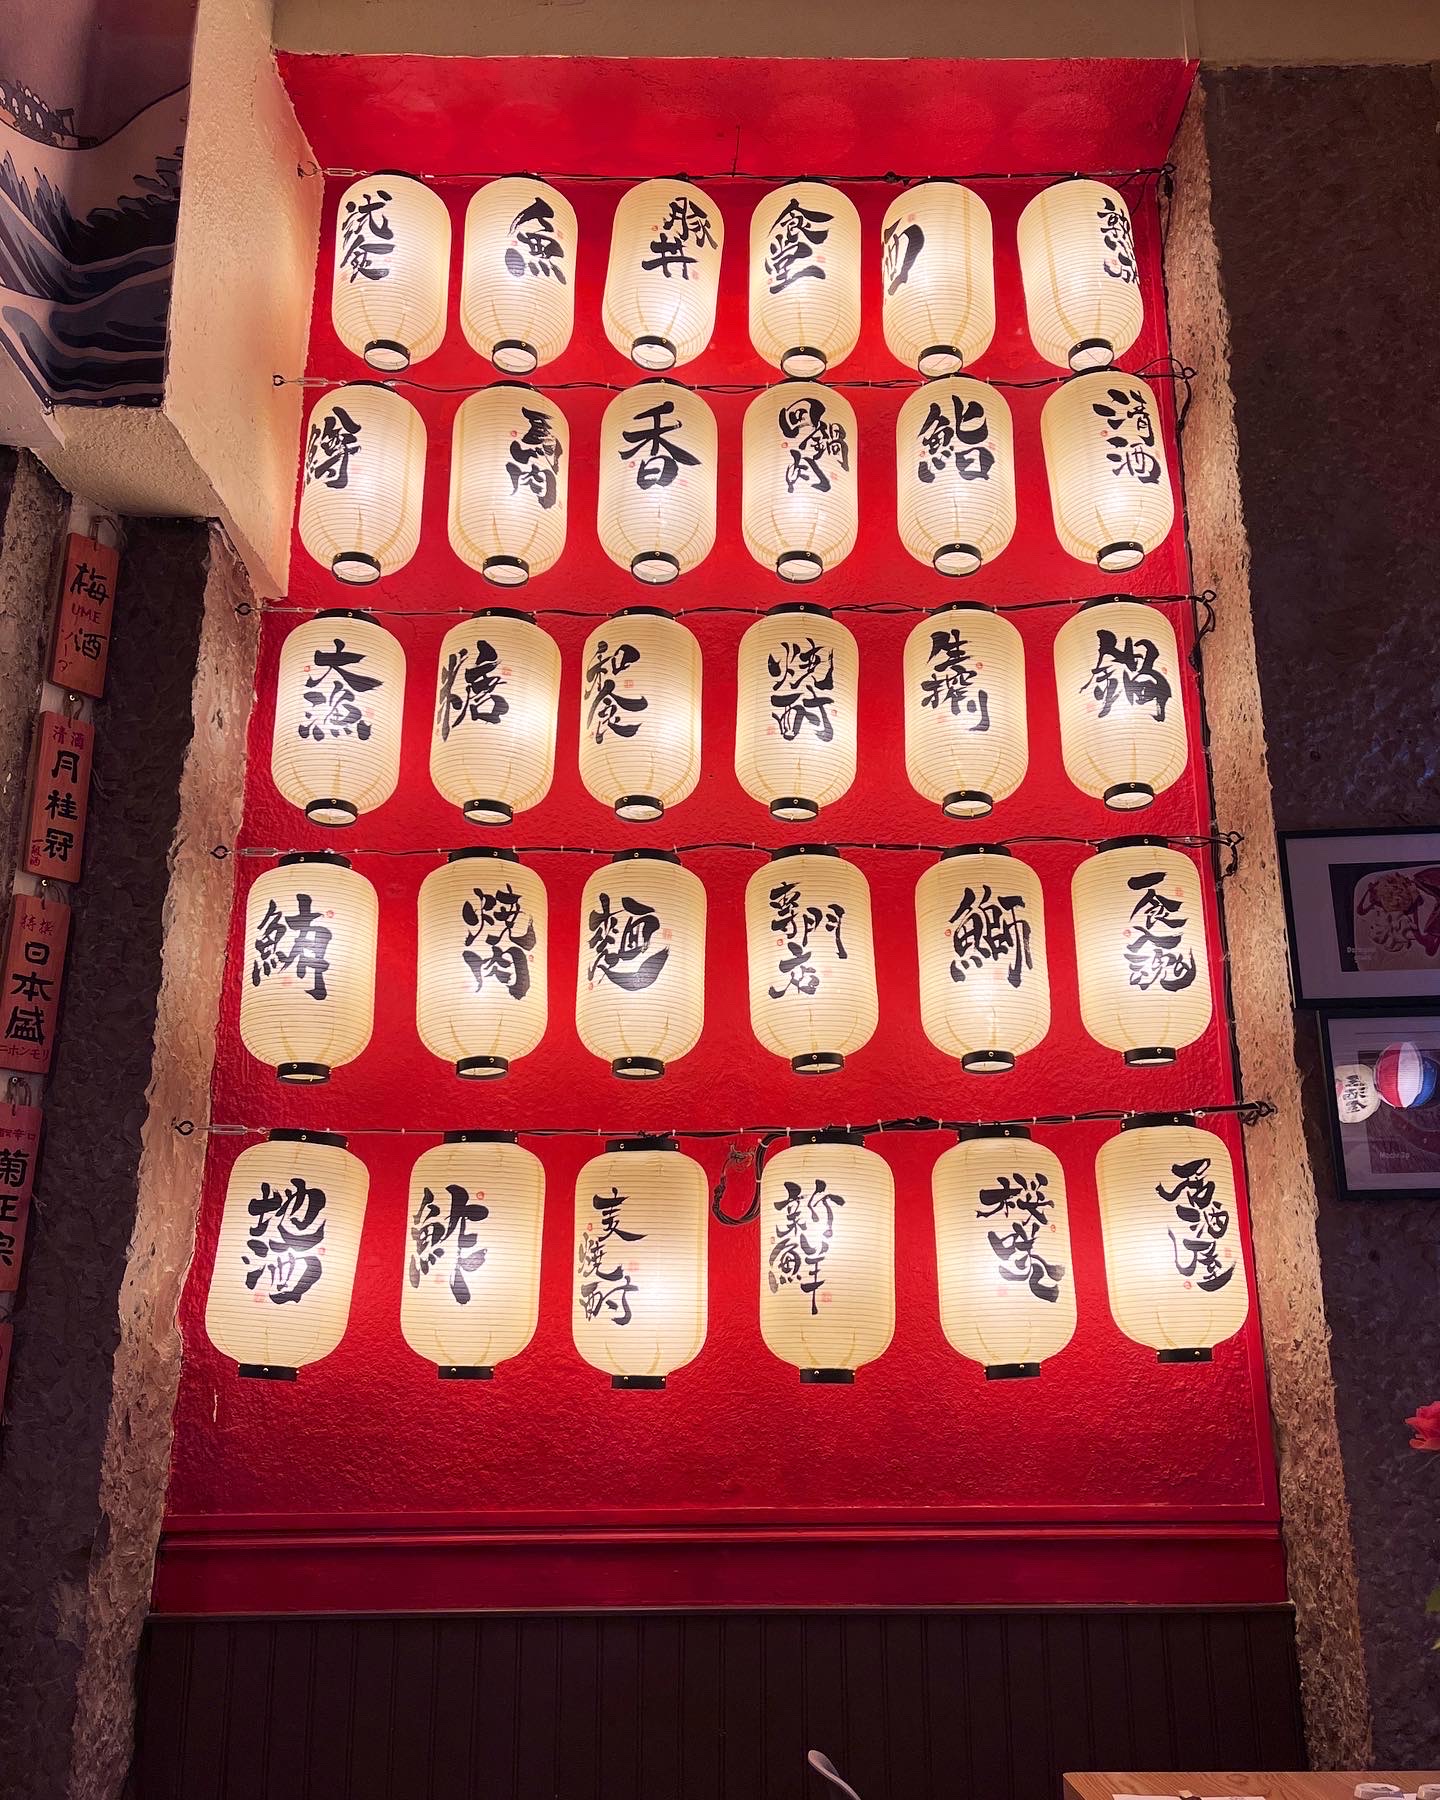 試食
魚
豚丼
食堂
酒
熟成
鱒
馬肉
香
回鍋肉
鮨
清酒
大漁
糖
和食
焼酎
生搾り
鍋
鮪
焼肉
麺
専門店
鰤
食魂
地酒
鮓
麦焼酎
新鮮
桜咲
居酒屋
梅酒
UME
清酒
月桂冠
特撰
日本盛
ニホンモリ
辛口
菊正宗